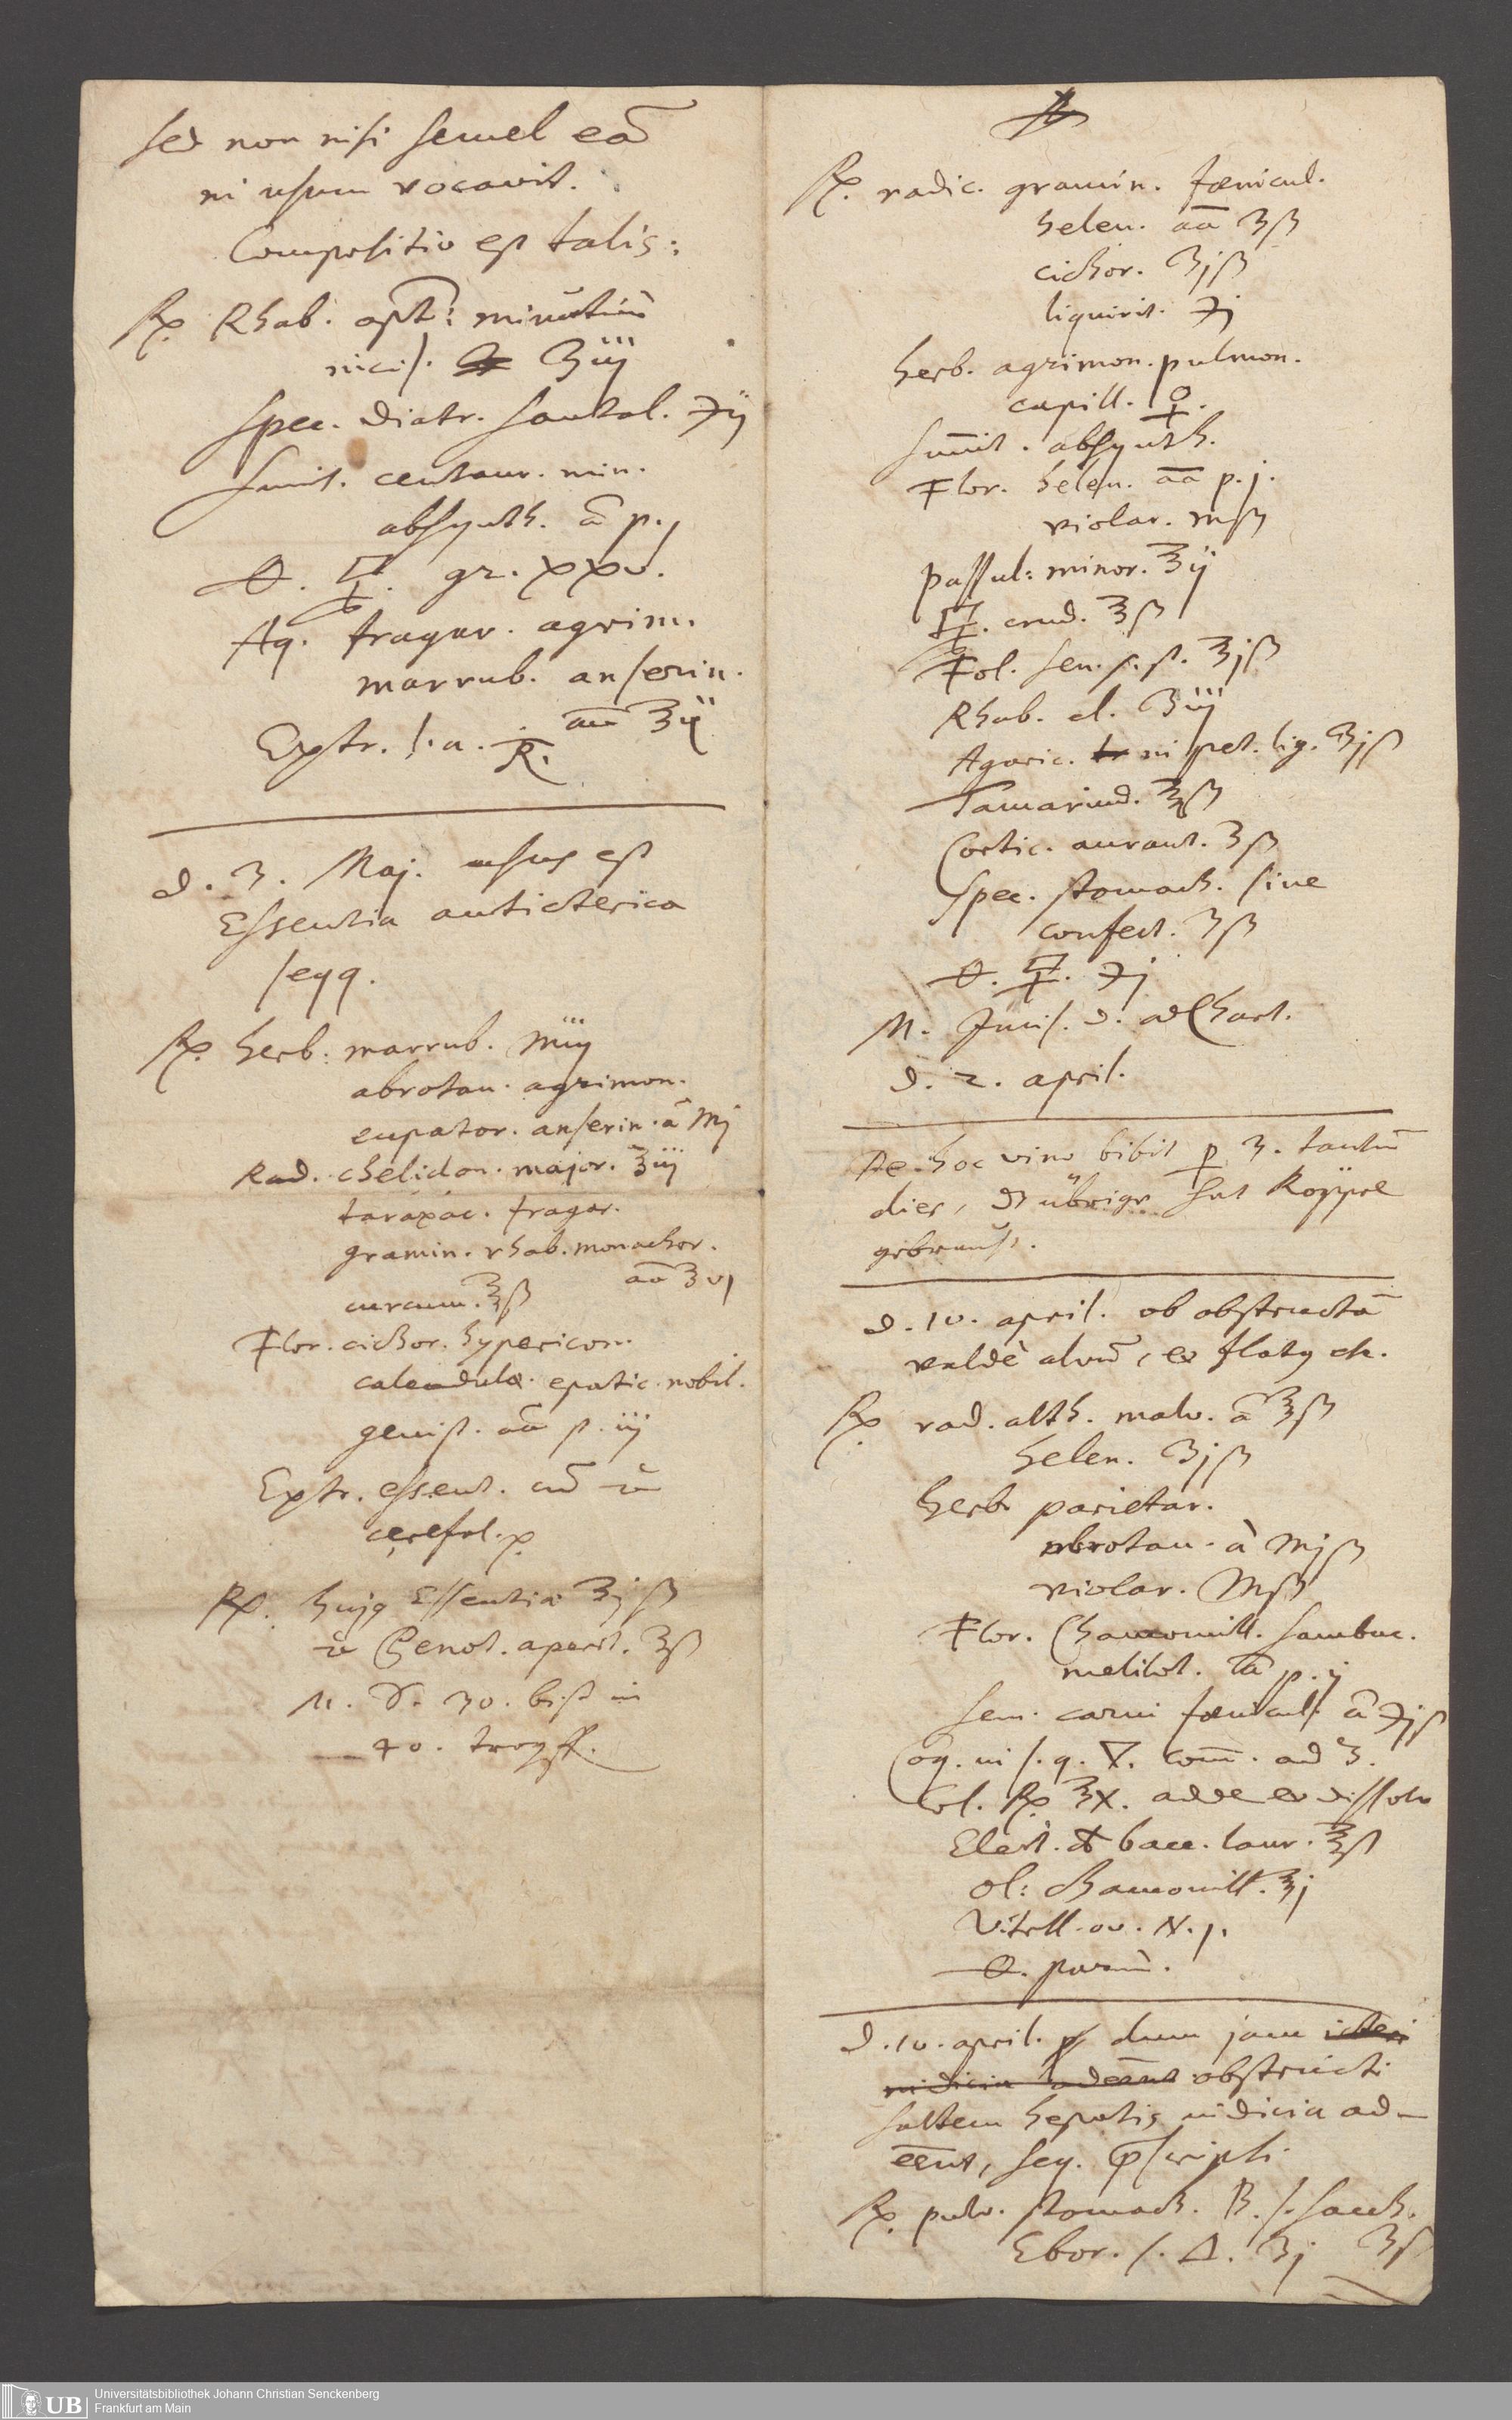 sed non nisi semel eã
in usum vocavit.
Compositio est talis:
℞ Rhab. opt: minutim
incis. ʒiij
Spec. diatr. santal. ℈ij
Sum̃it. centaur. min.
absynth. ã p.j
gr. xxv.
Aq. fragar. agrim.
marrub. anserin.
aã ℥ij
Extr. s. a.
d. 3. Maj. usus est
Essentia anticterica
seqq.
℞ herb: marrub. Miij
abrotan. agrimon.
eupator. anserin. ã Mj
Rad. chelidon. major. ℥iij
taraxac. fragar.
gramin. rhab. monachor.
aã ʒvj
curcum. ℥ß
Flor. cichor. hypericon.
calendulæ. epatic. nobil.
genist. aã p. iij
Extr. essent. cũ
cerefol.
℞. hujq Essentiæ ℥jß
apert. ℥ß
M. D. 30. bist in
40. tropff.
℞. radic. gramin. fœnicul.
helen. aã ʒß
cichor. ʒjß
liquirit. ℈j
herb. agrimon. pulmon.
capill. ♀.
Sum̃it. absynth.
Flor. helen. aã p.j.
violar. mß
passul: minor. ℥ij
crud. ℥ß
Fol. sen. s. st. ℥jß
Rhab. el. ʒiij
Agaric. in pet. lig. ʒjß
Tamarind. ℥ß
Cortic. aurant. ʒß
Spec. stomach. sine
confect. ʒß
℈j
M. Incis. d. ad Chart.
d. 2. april.
De hoc vino bibit p 3. tantũ
dies, dz übrige hat Köppel
gebraucht.
d. 10. april. ob obstructã
valdè alvũ, et flatq etc.
℞ rad. alth. malv. ã ℥ß
helen. ʒjß
herb. parietar.
abrotan. ã Mjß
violar. Mß
Flor. Chamomill. sambuc.
melilot. aã p.j
Sem. carvi fœnicul. ã ℈jß
Coq. in s. q. ▽. com̃. ad 3.
Col. ℞ ℥x. adde et dissolv
Elect. de bacc. laur. ℥ß
ol: Chamomill. ℥j
Vitell. ov. N. j.
parum.
d. 10. april. dum jam icteri
indicia aderant obstructi
saltem hepatis indicia ad-
erant, seq. pscripsi
℞ pulv. stomach. B. s. sacch.
Ebor. s. △. ʒj ʒß
UB Universitätsbibliothek Johann Christian Senckenberg
Frankfurt am Main